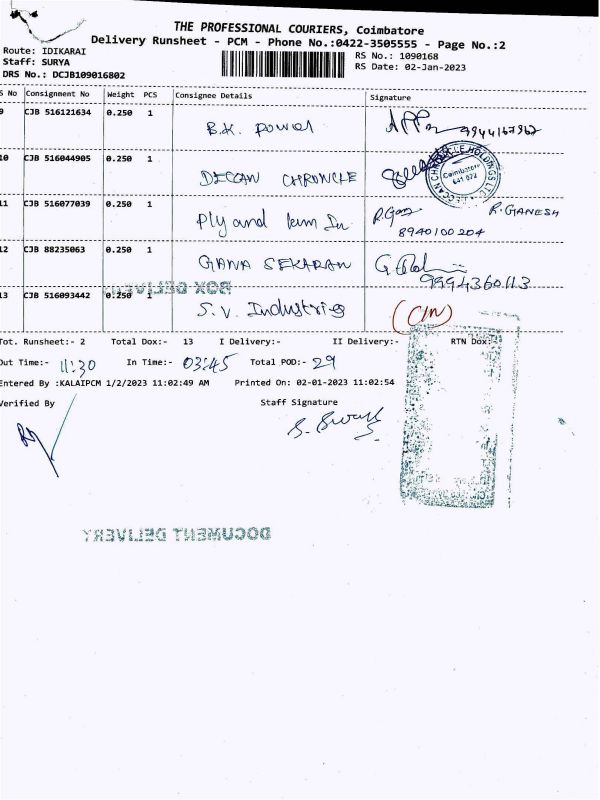 THE PROFESSIONAL COURIERS, Coimbatore
Delivery Runsheet - PCM - Phone No.:0422-3505555 - Page No.:2
Route: IDIKARAI
Staff: SURYA
DRS No.: DCJB109016802
RS No.: 1090168
RS Date: 02-Jan-2023
S No Consignment No Weight PCS Consignee Details Signature
9 CJB 516121634 0.250 1 B.K. Power 9944167967
10 CJB 516044905 0.250 1 DECCAN CHRONICLE
DECCAN CHRONICLE HOLDINGS LTD
Coimbatore
641 022
11 CJB 516077039 0.250 1 Ply and R. GANESH
8940100204
12 CJB 88235063 0.250 1 GANA SEKARAN
9994360113
BOX DELIVERY
13 CJB 516093442 0.250 1 S.V. Industries (CIN)
Tot. Runsheet:- 2 Total Dox:- 13 I Delivery:- II Delivery:- RTN Dox:-
Out Time:- 11:30 In Time:- 03:45 Total POD:- 29
Entered By :KALAIPCM 1/2/2023 11:02:49 AM Printed On: 02-01-2023 11:02:54
Verified By Staff Signature
DOCUMENT DELIVERY